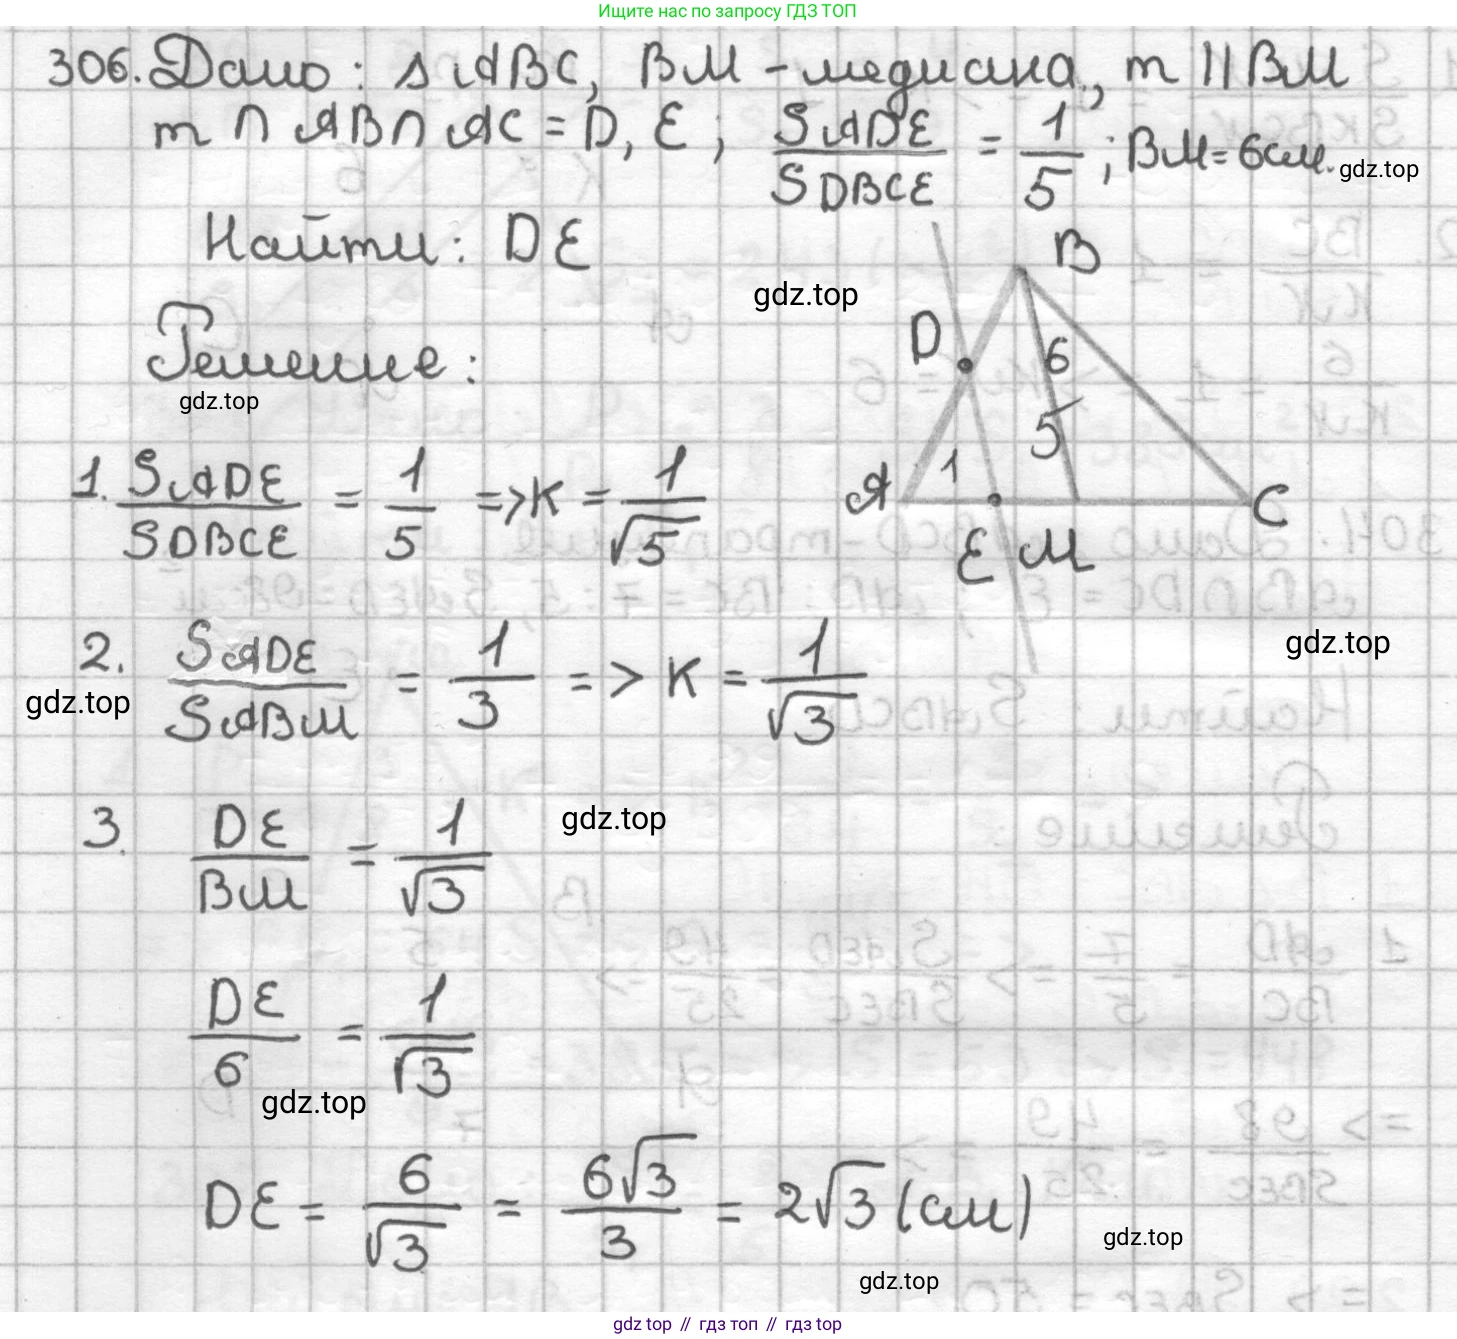 Ищите нас по запросу ГДЗ ТОП
306. Дано: △ABC, BM - медиана, m || BM
m ∩ AB ∩ AC = D, E; S ADE / S DBCE = 1/5; BM = 6см.
gdz.top
Найти: DE
gdz.top
Решение:
gdz.top
B
D
6
5
1
A
C
E M
1. S ADE / S DBCE = 1/5 => K = 1/√5
gdz.top
2. S ADE / S ABM = 1/3 => K = 1/√3
gdz.top
3. DE/BM = 1/√3
gdz.top
DE/6 = 1/√3
gdz.top
DE = 6/√3 = 6√3/3 = 2√3 (см)
gdz.top
gdz.top
gdz top // гдз топ // гдз top